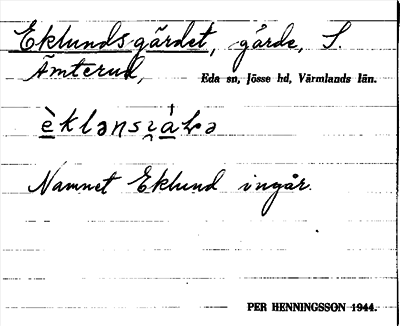 Eklundsgärdet, gärde, S.
Ämterud,
Eda sn, Jösse hd, Värmlands län.
Namnet Eklund ingår.
PER HENNINGSSON 1944.